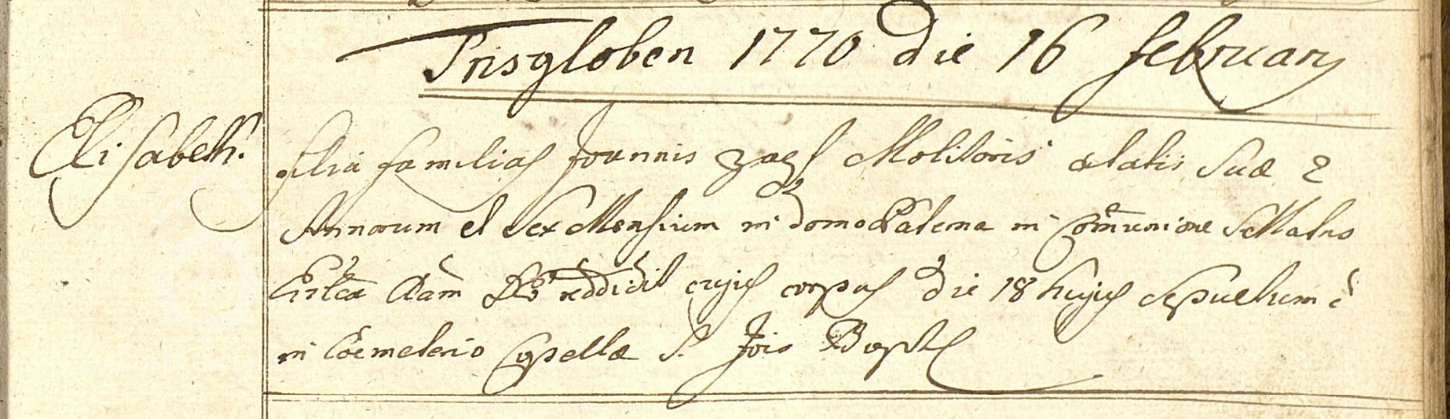 Trisgloben 1770 die 16 february
Elisabeth. filia familias Joannis Zags Molitoris ætatis suæ 2
Annorum et sex Mensium in domo Paterna in Com̄unione Sæ Matris
Ecl̄æ Aām Dō reddidit cujus corpus die 18 hujus sepultum ē
in Coemeterio Capellæ S. Jois Bapt